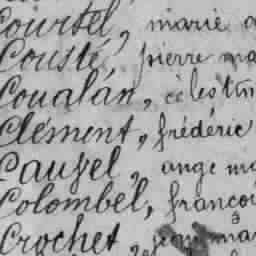 Courtel, marie
Cousté, pierre ma
Coualan, célestin
Clément, frédéric
Cauzel, ange ma
Colombel, françoi
Crochet, jean mar